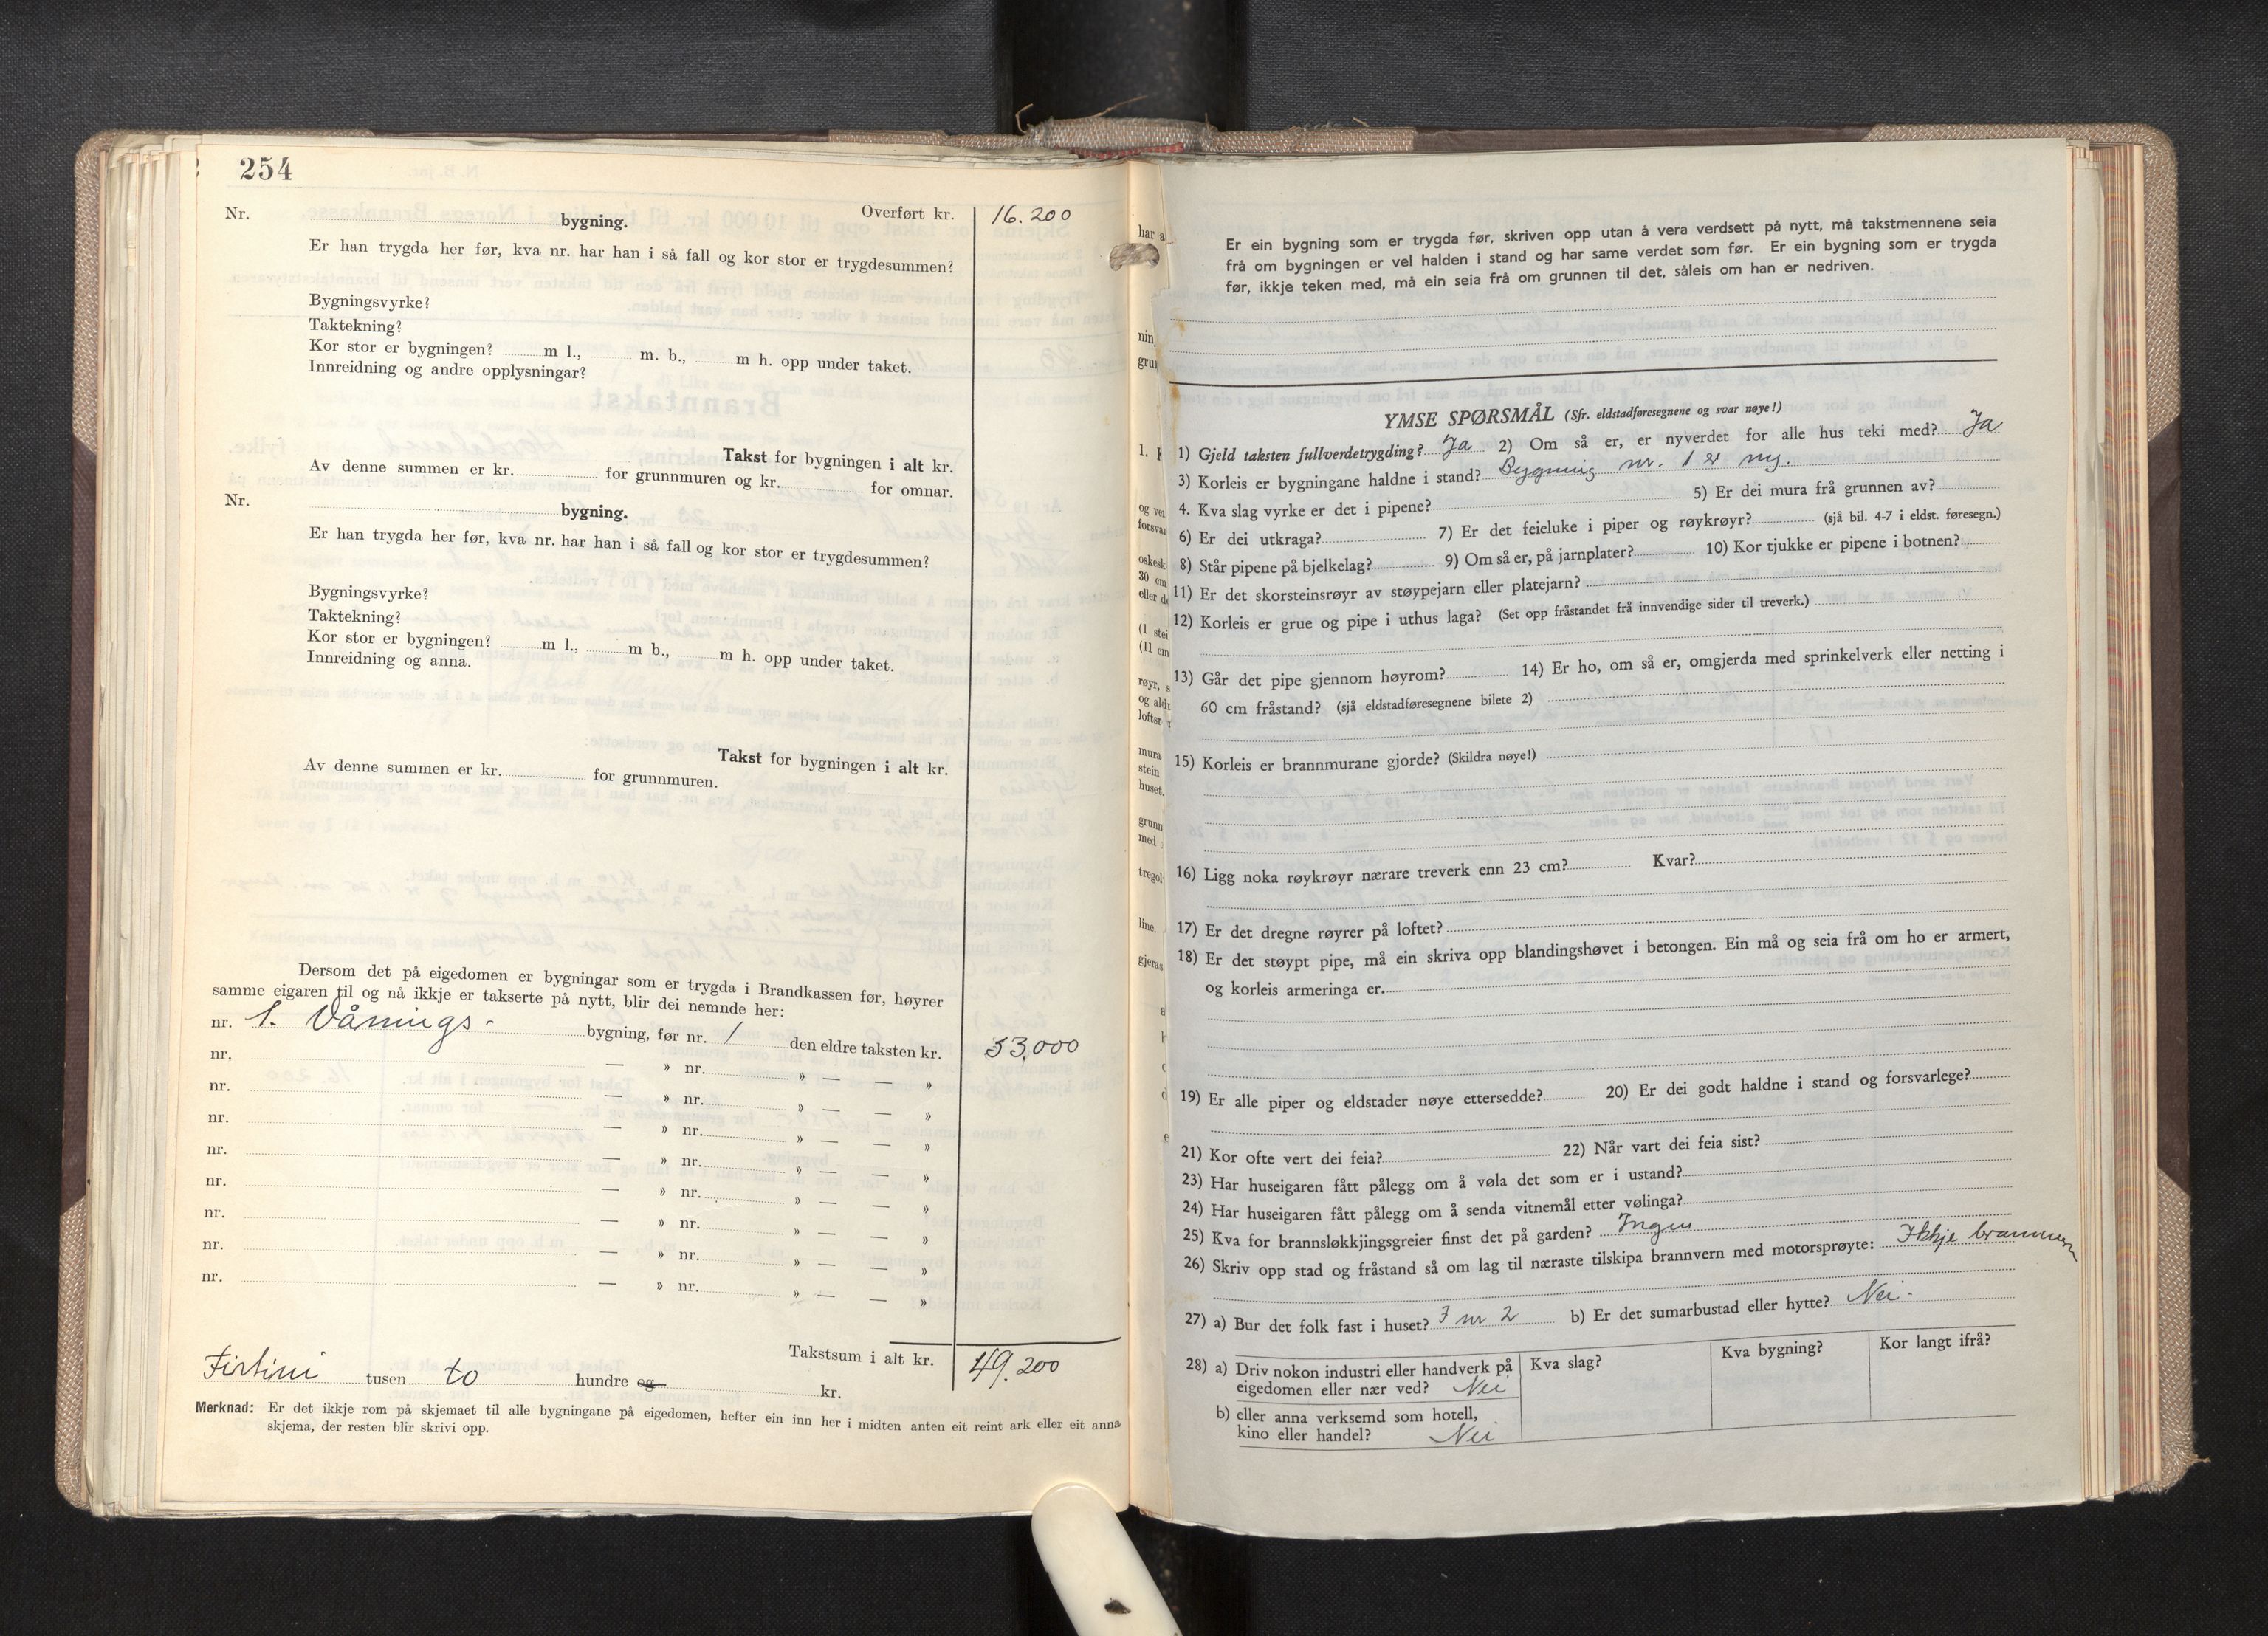 254
Nr. bygning. Overført kr. 16.200
Er han trygda her før, kva nr. har han i så fall og kor stor er trygdesummen?
Bygningsvyrke?
Taktekning?
Kor stor er bygningen? m l., m. b., m h. opp under taket.
Innreidning og andre opplysningar?
Takst for bygningen i alt kr.
Av denne summen er kr. for grunnmuren og kr. for omnar.
Nr. bygning.
Er han trygda her før, kva nr. har han i så fall og kor stor er trygdesummen?
Bygningsvyrke?
Taktekning?
Kor stor er bygningen? m l., m b., m h. opp under taket.
Innreidning og anna.
Takst for bygningen i alt kr.
Av denne summen er kr. for grunnmuren.
Dersom det på eigedomen er bygningar som er trygda i Brandkassen før, høyrer
samme eigaren til og nå ikkje er takserte på nytt, blir dei nemnde her:
nr. 1. Vånings- bygning, før nr. 1 den eldre taksten kr. 33.000
nr. — » nr. » — — »
nr. — » nr. » — — »
nr. — » nr. » — — »
nr. — » nr. » — — »
nr. — » nr. » — — »
nr. — » nr. » — — »
nr. — » nr. » — — »
nr. — » nr. » — — »
Takstsum i alt kr. 49.200
Førtini tusen to hundre og kr.
Merknad: Er det ikkje rom på skjemaet til alle bygningane på eigedomen, hefter ein inn her i midten anten eit reint ark eller eit anna
skjema, der resten blir skrivi opp.
Er ein bygning som er trygda før, skriven opp utan å vera verdsett på nytt, må takstmennene seia
frå om bygningen er vel halden i stand og har same verdet som før. Er ein bygning som er trygda
før, ikkje teken med, må ein seia frå om grunnen til det, såleis om han er nedriven.
YMSE SPØRSMÅL (Sfr. eldstadføresegnene og svar nøye!)
1) Gjeld taksten fullverdetrygding? Ja 2) Om så er, er nyverdet for alle hus teki med? Ja
3) Korleis er bygningane haldne i stand? Bygning nr. 1 er ny.
4. Kva slag vyrke er det i pipene? 5) Er dei mura frå grunnen av?
6) Er dei utkraga? 7) Er det feieluke i piper og røykrøyr? (sjå bil. 4-7 i eldst. føresegn.)
8) Står pipene på bjelkelag? 9) Om så er, på jarnplater? 10) Kor tjukke er pipene i botnen?
11) Er det skorsteinsrøyr av støypejarn eller platejarn?
12) Korleis er grue og pipe i uthus laga? (Set opp fråstandet frå innvendige sider til treverk.)
13) Går det pipe gjennom høyrom? 14) Er ho, om så er, omgjerda med sprinkelverk eller netting i
60 cm fråstand? (sjå eldstadføresegnene bilete 2)
15) Korleis er brannmurane gjorde? (Skildra nøye!)
16) Ligg noka røykrøyr nærare treverk enn 23 cm? Kvar?
17) Er det dregne røyrer på loftet?
18) Er det støypt pipe, må ein skriva opp blandingshøvet i betongen. Ein må og seia frå om ho er armert,
og korleis armeringa er.
19) Er alle piper og eldstader nøye ettersedde? 20) Er dei godt haldne i stand og forsvarlege?
21) Kor ofte vert dei feia? 22) Når vart dei feia sist?
23) Har huseigaren fått pålegg om å vøla det som er i ustand?
24) Har huseigaren fått pålegg om å senda vitnemål etter vølinga?
25) Kva for brannsløkkjingsgreier finst det på garden? Ingen
26) Skriv opp stad og fråstand så om lag til næraste tilskipa brannvern med motorsprøyte: Ikkje brannvern
27) a) Bur det folk fast i huset? I nr 2 b) Er det sumarbustad eller hytte? Nei.
28) a) Driv nokon industri eller handverk på Kva slag? Kva bygning? Kor langt ifrå?
eigedomen eller nær ved? Nei
b) eller anna verksemd som hotell,
kino eller handel? Nei